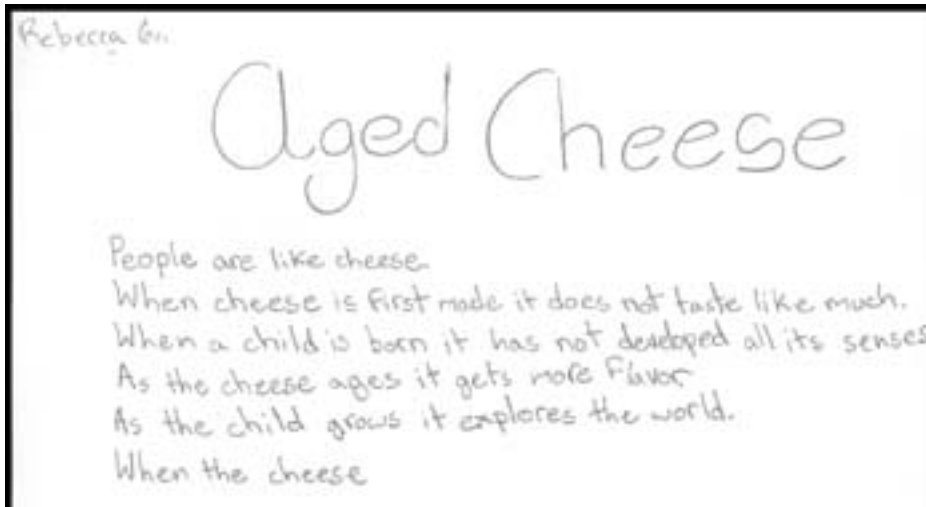 Rebecca Gr.
Aged Cheese
People are like cheese.
When cheese is first made it does not taste like much.
When a child is born it has not developed all its senses
As the cheese ages it gets more Flavor
As the child grows it explores the world.
When the cheese